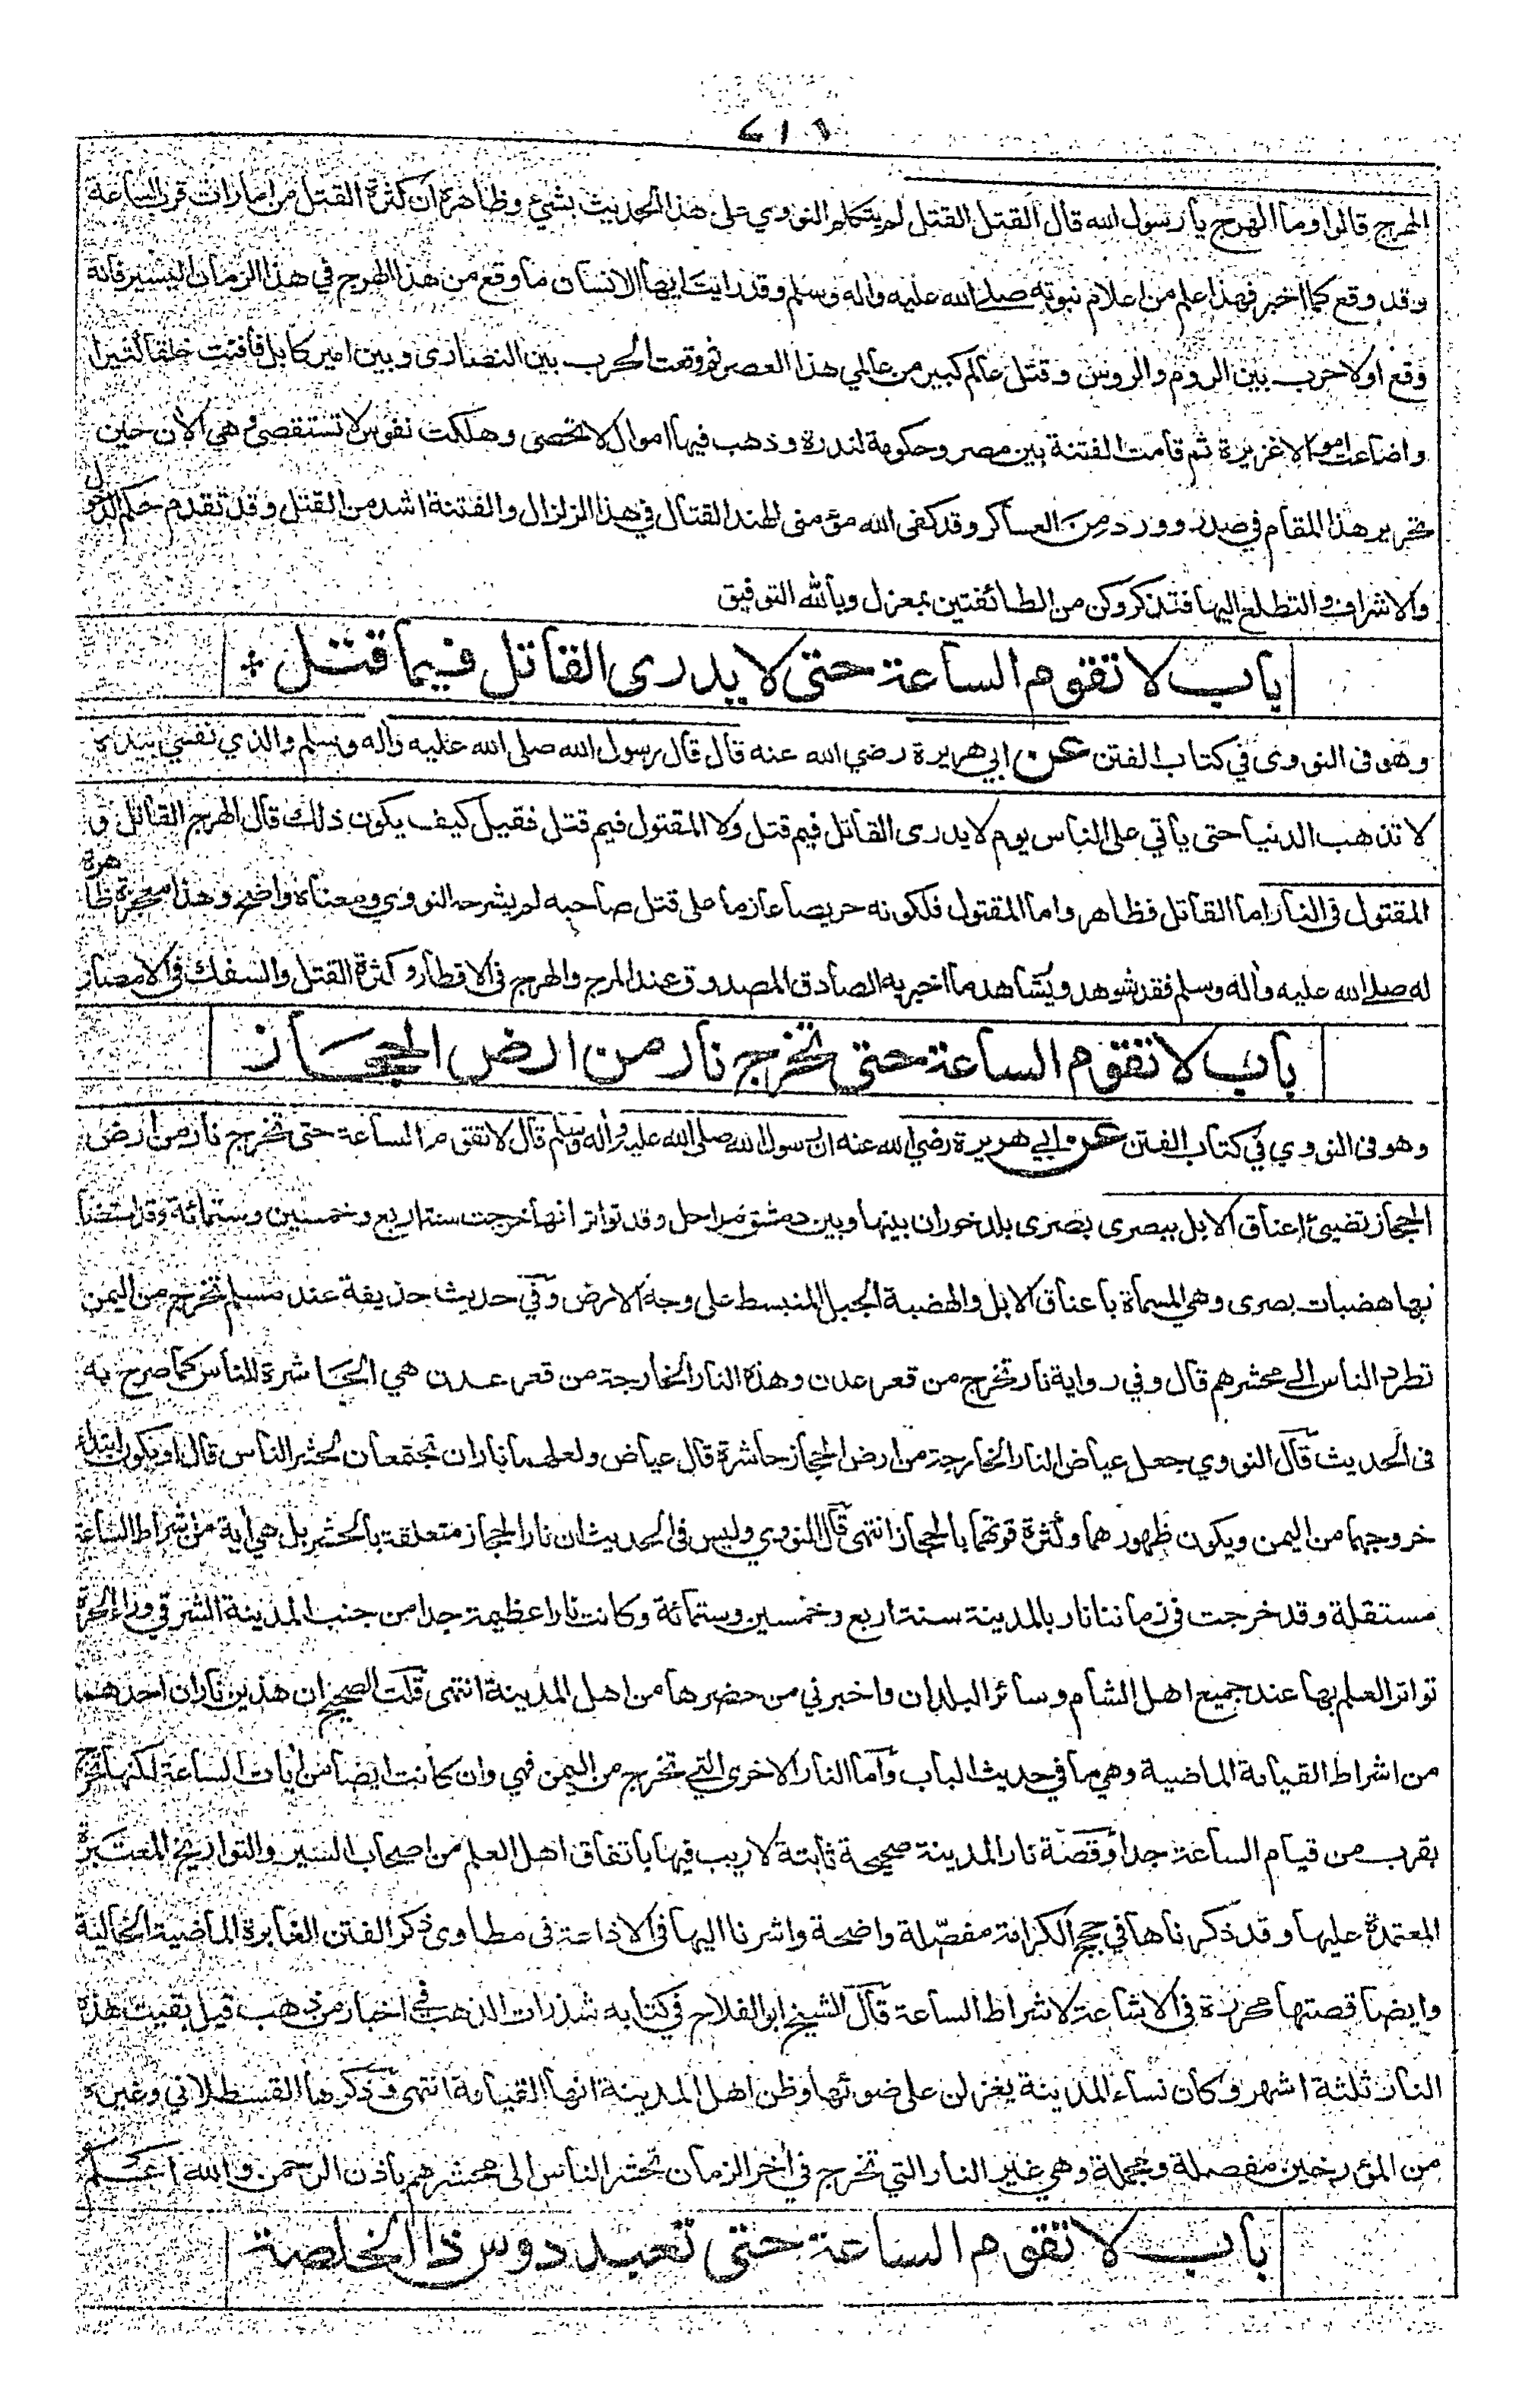 الهرج قالوا وما الهرج يا رسول الله قال القتل القتل لم يتكلم النووي على هذا الحديث بشيء وظاهره ان كثرة القتل من امارات قرب الساعة
وقد وقع كما اخبر فهذا علم من اعلام نبوته صلى الله عليه واله وسلم وقد رايت ايها الانسان ما وقع من هذا الهرج في هذا الزمان اليسير فانه
وقع اولا حرب بين الروم والروس وقتل عالم كبير من عالمي هذا العصر ثم وقعت الحرب بين النصارى وبين امير كابل فافنت خلقا كثيرا
واضاعت اموالا غزيرة ثم قامت الفتنة بين مصر وحكومة لندرة وذهب فيها اموال لا تحصى وهلكت نفوس لا تستقصى وهي الآن حين
تحرير هذا المقام في صدر وورد من العساكر وقد كفى الله مؤمنى الهند القتال في هذا الزلزال والفتنة اشد من القتل وقد تقدم حكم الدخول
والاشراف والتطلع اليها فتذكر وكن من الطائفتين بمعزل وبالله التوفيق
باب لا تقوم الساعة حتى لا يدرى القاتل فيما قتل
وهو فى النووى في كتاب الفتن عن ابي هريرة رضي الله عنه قال قال رسول الله صلى الله عليه واله وسلم والذي نفسي بيده
لا تذهب الدنيا حتى ياتي على الناس يوم لا يدرى القاتل فيم قتل ولا المقتول فيم قتل فقيل كيف يكون ذلك قال الهرج القاتل و
المقتول فى النار اما القاتل فظاهر واما المقتول فلكونه حريصا عازما على قتل صاحبه لم يشرحه النووي ومعناه واضح وهذا معجزة ظاهرة
له صلى الله عليه واله وسلم فقد شوهد ويشاهد ما اخبر به الصادق المصدوق عند المرج والهرج فى الاقطار وكثرة القتل والسفك فى الامصار
باب لا تقوم الساعة حتى تخرج نار من ارض الحجاز
وهو فى النووي في كتاب الفتن عن ابي هريرة رضي الله عنه ان رسول الله صلى الله عليه واله وسلم قال لا تقوم الساعة حتى تخرج نار من ارض
الحجاز تضيئ اعناق الابل ببصرى بصرى بلد حوران بينها وبين دمشق مراحل وقد تواتر انها خرجت سنة اربع وخمسين وستمائة وقد استضا
بها هضبات بصرى وهي المسماة باعناق الابل والهضبة الجبل المنبسط على وجه الارض وفي حديث حذيفة عند مسلم تخرج من اليمن
تطرد الناس الى محشرهم قال وفي رواية نار تخرج من قعر عدن وهذه النار الخارجة من قعر عدن هي الحاشرة للناس كما صرح به
فى الحديث قال النووي جعل عياض النار الخارجة من ارض الحجاز حاشرة قال عياض ولعلهما ناران تجتمعان لحشر الناس قال او يكون ابتداء
خروجهما من اليمن ويكون ظهورهما وكثرة قوتهما بالحجاز انتهى قال النووي وليس فى الحديث ان نار الحجاز متعلقة بالحشر بل هي آية من اشراط الساعة
مستقلة وقد خرجت فى زماننا نار بالمدينة سنة اربع وخمسين وستمائة وكانت نارا عظيمة جدا من جنب المدينة الشرقي وراء الحرة
تواتر العلم بها عند جميع اهل الشام وسائر البلدان واخبرني من حضرها من اهل المدينة انتهى قلت الصحيح ان هذين ناران احدهما
من اشراط القيامة الماضية وهي ما في حديث الباب واما النار الاخرى التي تخرج من اليمن فهي وان كانت ايضا من آيات الساعة لكنها تخرج
بقرب من قيام الساعة جدا وقصة نار المدينة صحيحة ثابتة لا ريب فيها باتفاق اهل العلم من اصحاب السير والتواريخ المعتبرة
المعتمدة عليها وقد ذكرناها في حجج الكرامة مفصلة واضحة واشرنا اليها فى الاذاعة فى مطاوى ذكر الفتن الغابرة الماضية الخالية
وايضا قصتها محررة فى الاشاعة لاشراط الساعة قال الشيخ ابو الفلاح في كتابه شذرات الذهب في اخبار من ذهب قيل بقيت هذه
النار ثلثة اشهر وكان نساء المدينة يغزلن على ضوئها وظن اهل المدينة انها القيامة انتهى وذكرها القسطلاني وغيره
من المؤرخين مفصلة ومجملة وهي غير النار التي تخرج في آخر الزمان تحشر الناس الى محشرهم باذن الرحمن والله اعلم
باب لا تقوم الساعة حتى تعبد دوس ذا الخلصة